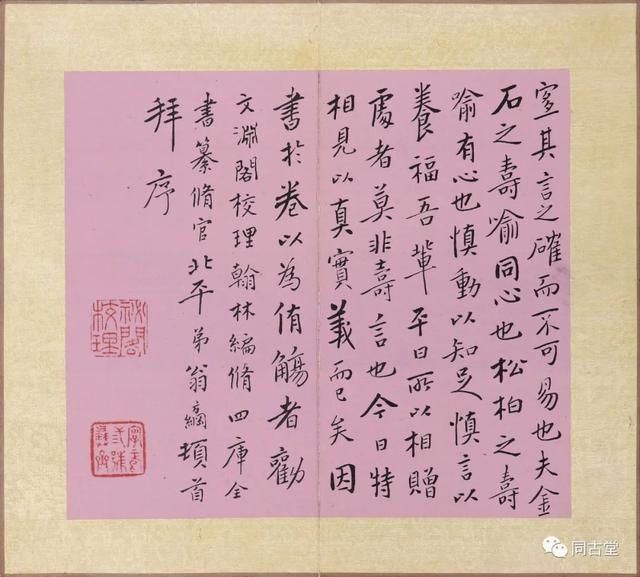 寔其言之確而不可易也夫金
石之壽喻同心也松柏之壽
喻有心也慎動以知足慎言以
養福吾輩平日所以相贈
處者莫非壽言也今日特
相見以真實義而已矣因
書於卷以為侑觴者勸
文淵閣校理翰林編脩四庫全
書纂脩官北平弟翁方綱頓首
拜序
秘閣校理
同古堂